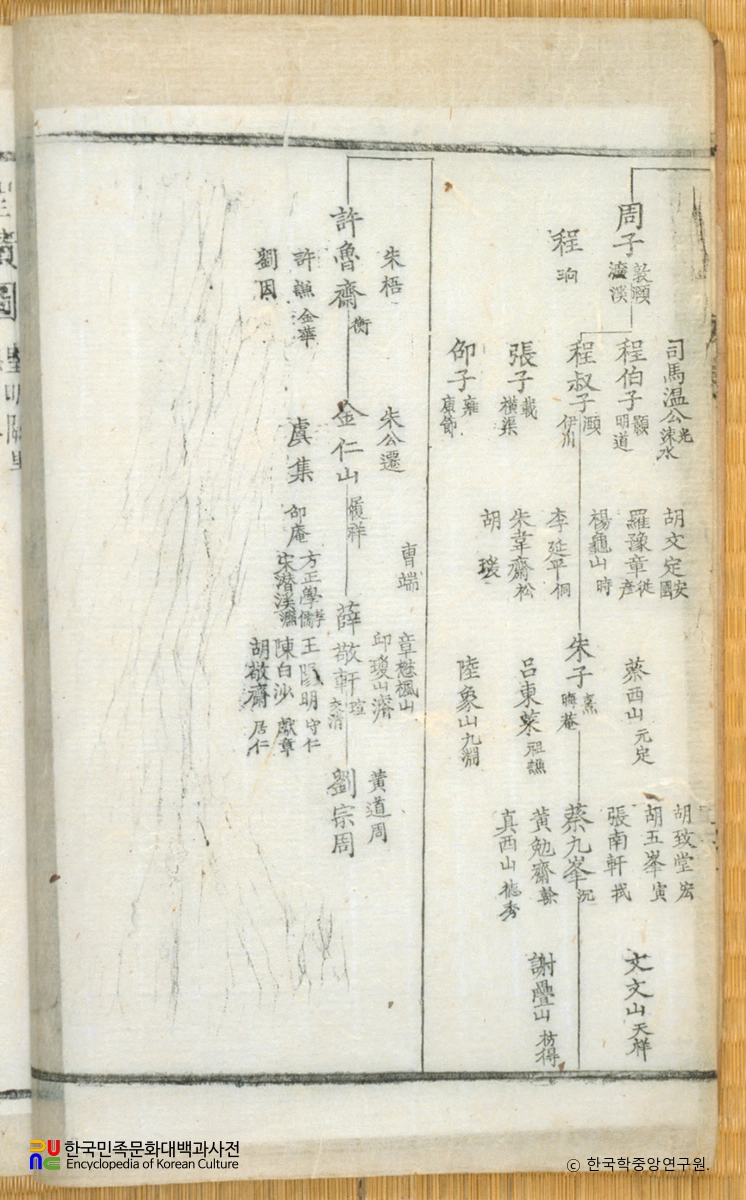 周子 敦頤 濂溪
程珦
司馬温公 光 涑水
程伯子 顥 明道
程叔子 頤 伊川
張子 載 橫渠
邵子 雍 康節
胡文定 安國
羅豫章 從彥
楊龜山 時
李延平 侗
朱韋齋 松
胡瑗
蔡西山 元定
朱子 熹 晦菴
呂東萊 祖謙
陸象山 九淵
胡致堂 宏
胡五峯 寅
張南軒 栻
蔡九峯 沉
黃勉齋 榦
真西山 德秀
文文山 天祥
謝疊山 枋得
朱梧
許魯齋 衡
許謙 金華
劉因
朱公遷
金仁山 履祥
虞集 邵庵
曺端
方正學 孝儒
宋潛溪 濂
章懋楓山
邱瓊山 濬
薛敬軒 瑄 文清
王陽明 守仁
陳白沙 獻章
胡敬齋 居仁
黃道周
劉宗周
한국민족문화대백과사전
Encyclopedia of Korean Culture
© 한국학중앙연구원.